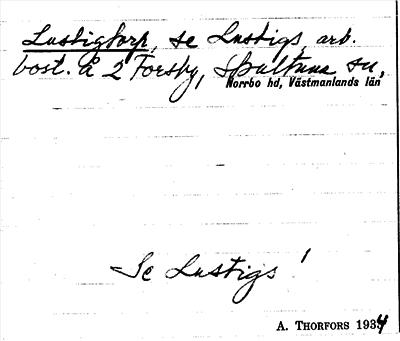 Lustigtorp, se Lustigs, arb.
bost. å 2 Forsby, Skultuna sn,
Norrbo hd, Västmanlands län
Se Lustigs!
A. THORFORS 1934